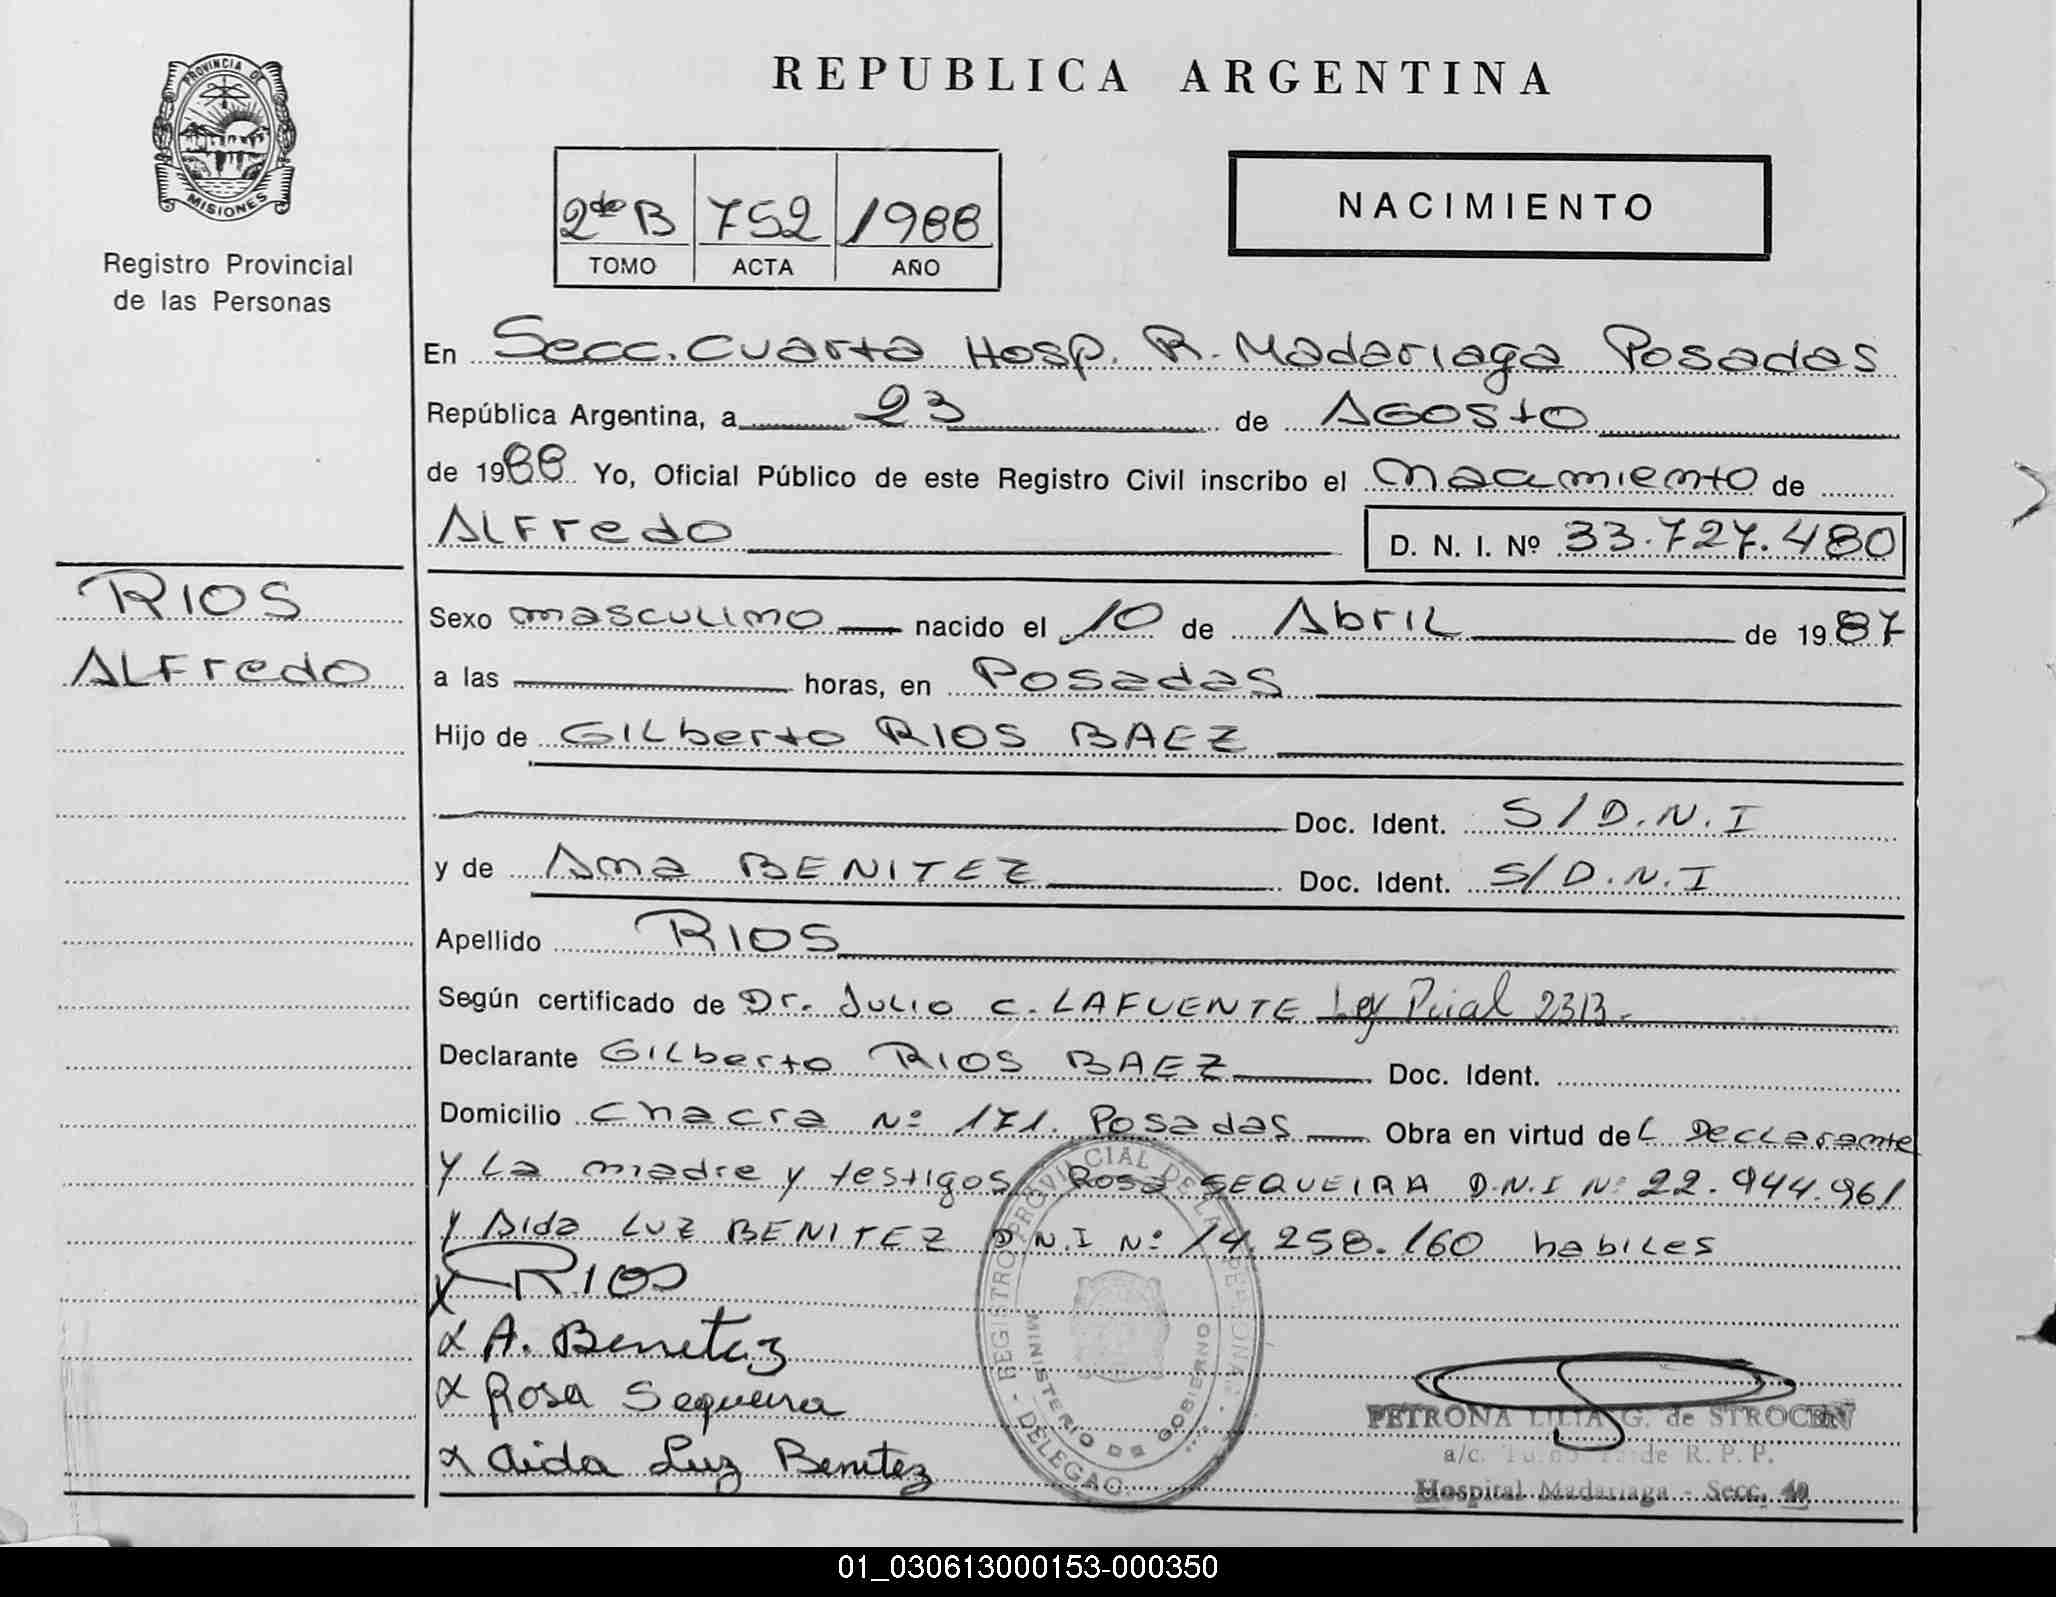 PROVINCIA DE
MISIONES
Registro Provincial
de las Personas
REPUBLICA ARGENTINA
2do B 752 1988
TOMO ACTA AÑO
NACIMIENTO
En Secc. Cuarta Hosp. R. Madariaga Posadas
República Argentina, a 23 de Agosto
de 1988 Yo, Oficial Público de este Registro Civil inscribo el nacimiento de
Alfredo D. N. I. Nº 33.727.480
RIOS
Alfredo
Sexo masculino nacido el 10 de Abril de 1987
a las horas, en Posadas
Hijo de Gilberto RIOS BAEZ
Doc. Ident. S/D.N.I
y de Ana BENITEZ Doc. Ident. S/D.N.I
Apellido RIOS
Según certificado de Dr. Julio C. LAFUENTE Ley Pcial 2313.
Declarante Gilberto RIOS BAEZ Doc. Ident.
Domicilio Chacra Nº 171. Posadas Obra en virtud del Declarante
y la madre y testigos Rosa SEQUEIRA D.N.I Nº 22.944.961
y Aida LUZ BENITEZ D.N.I Nº 14.258.160 habiles
X RIOS
X A. Benitez
X Rosa Sequeira
X Aida Luz Benitez
REGISTRO PROVINCIAL DE LAS PERSONAS - DELEGAC.
MINISTERIO DE GOBIERNO
PETRONA LILIA G. de STROCEN
a/c. Turno Tarde R. P. P.
Hospital Madariaga - Secc. 4ª
01_030613000153-000350